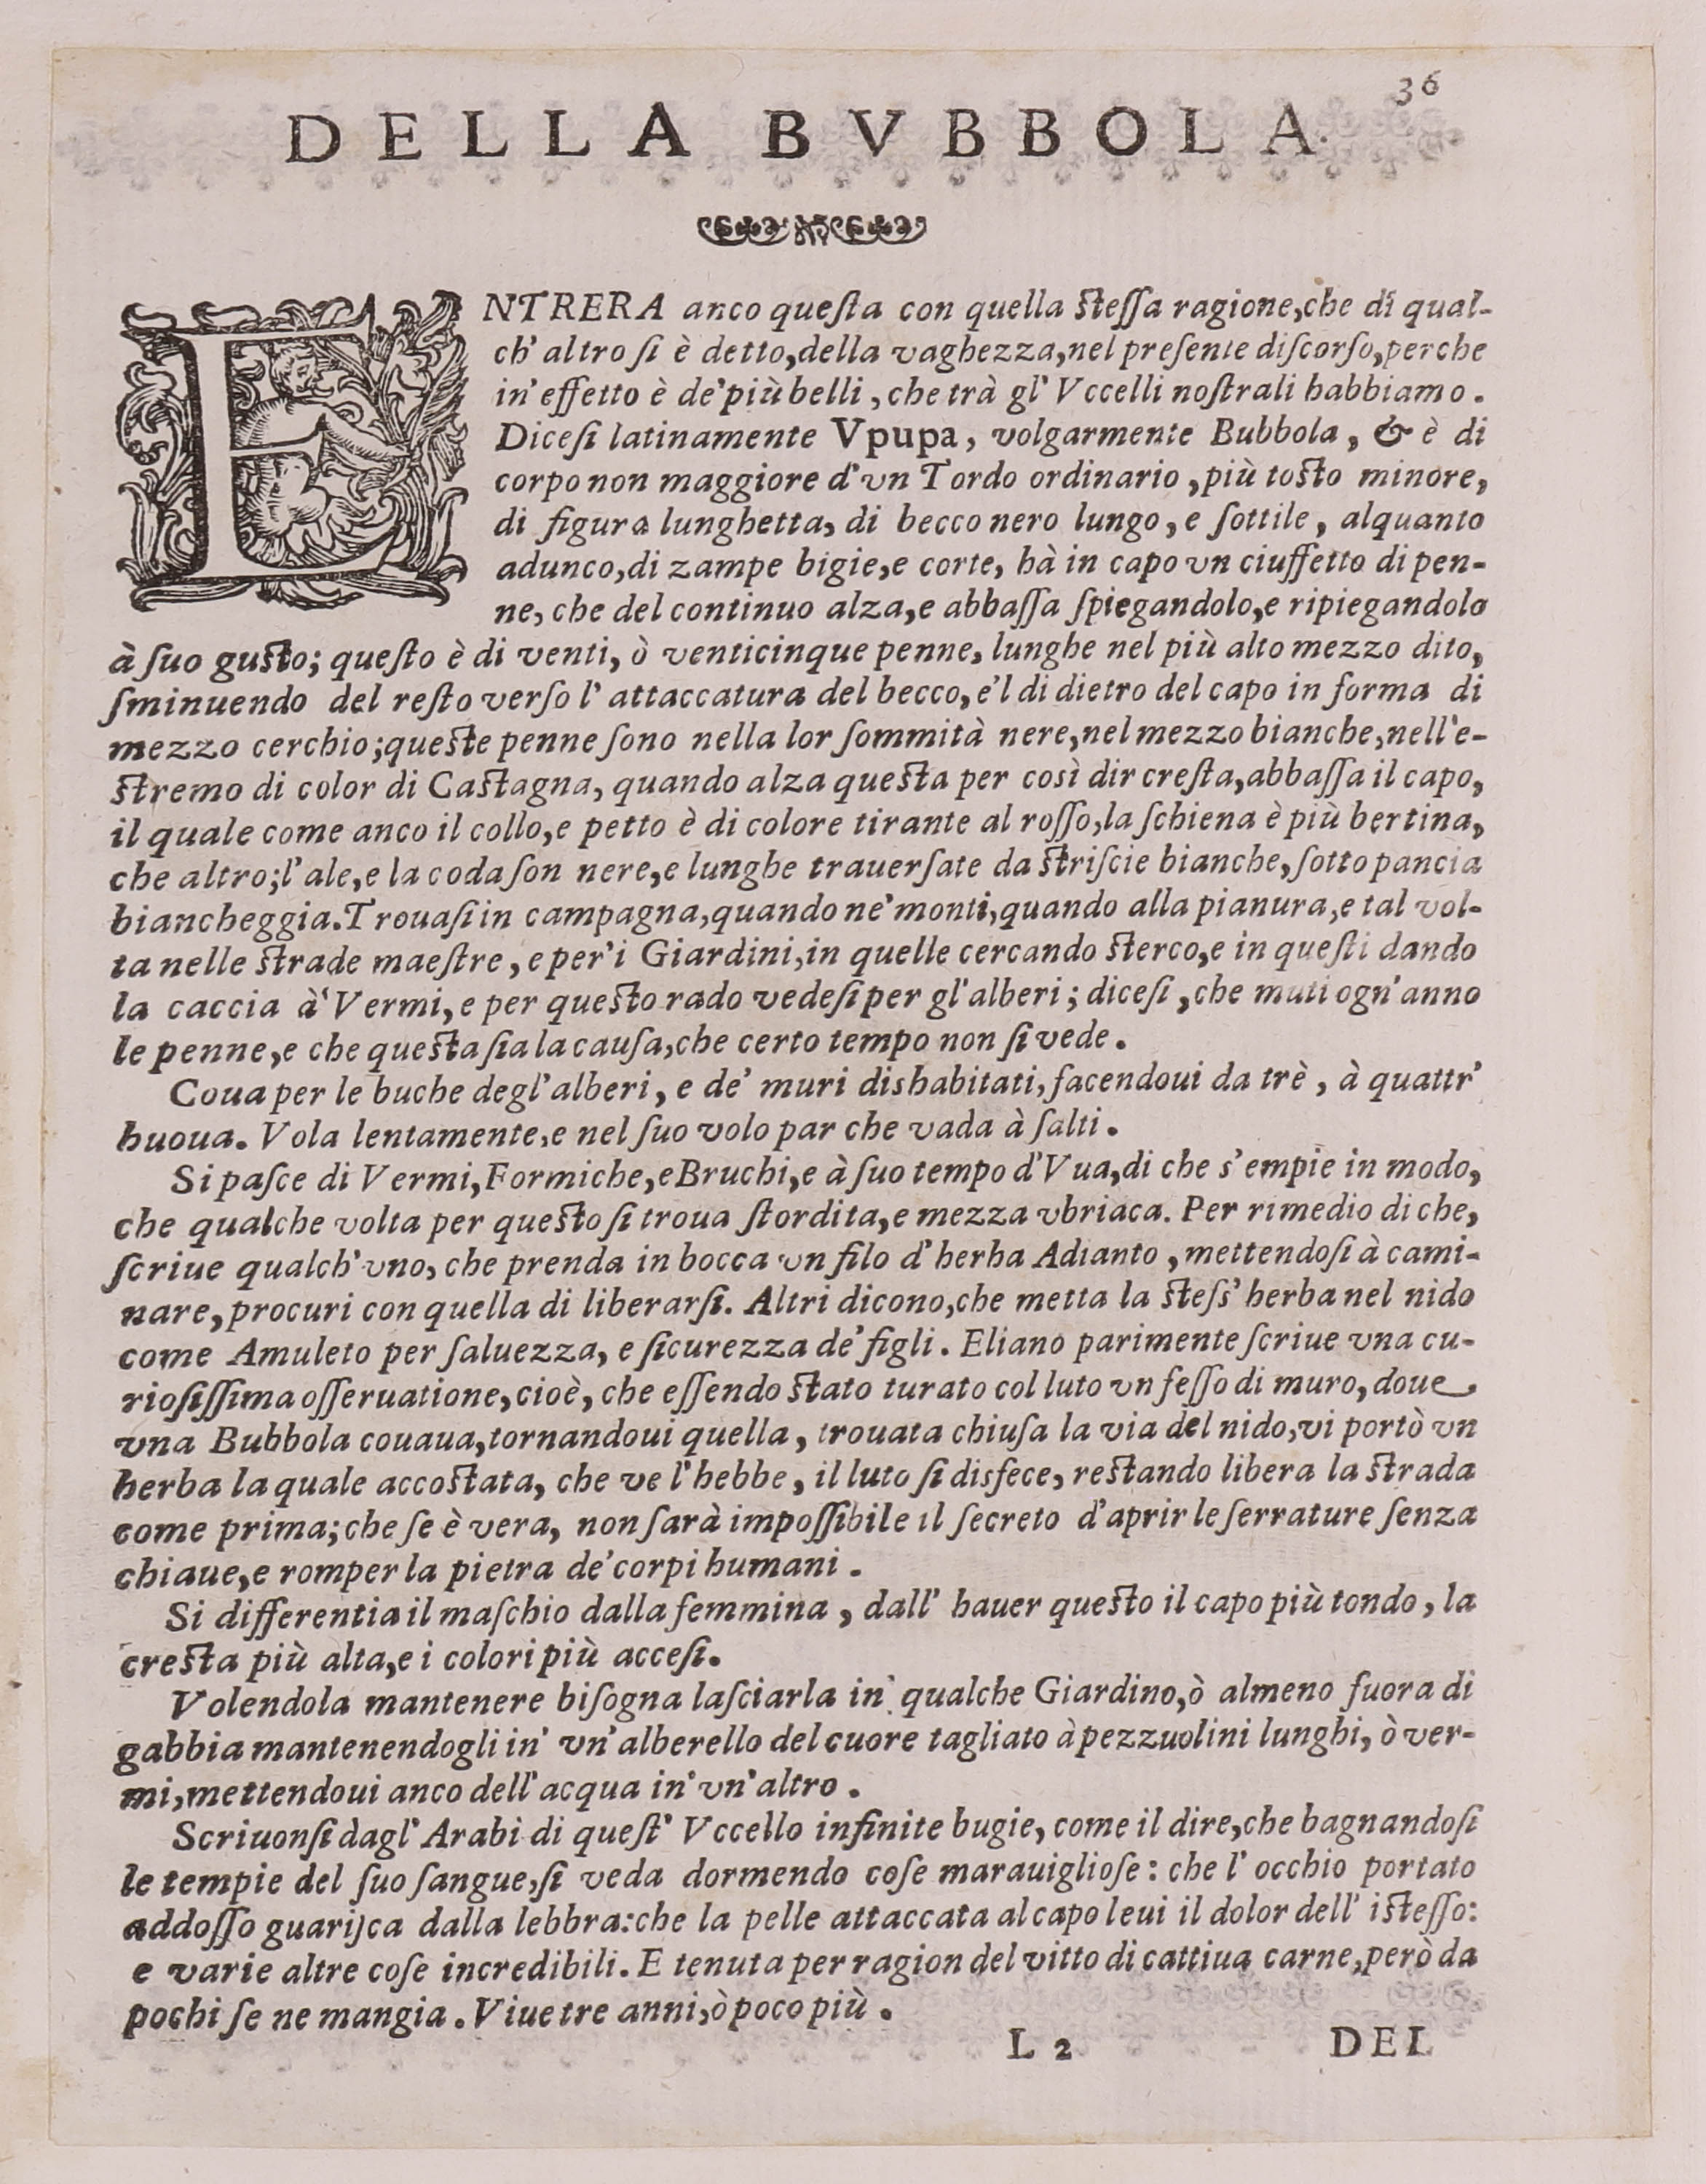 36
DELLA BVBBOLA.
ENTRERA anco queſta con quella ſteſſa ragione, che di qual-
ch' altro ſi è detto, della vaghezza, nel preſente diſcorſo, perche
in' effetto è de' più belli, che trà gl' Vccelli noſtrali habbiamo.
Diceſi latinamente Vpupa, volgarmente Bubbola, & è di
corpo non maggiore d' vn Tordo ordinario, più toſto minore,
di figura lunghetta, di becco nero lungo, e ſottile, alquanto
adunco, di zampe bigie, e corte, hà in capo vn ciuffetto di pen-
ne, che del continuo alza, e abbaſſa ſpiegandolo, e ripiegandolo
à ſuo guſto; queſto è di venti, ò venticinque penne, lunghe nel più alto mezzo dito,
ſminuendo del reſto verſo l' attaccatura del becco, e'l di dietro del capo in forma di
mezzo cerchio; queſte penne ſono nella lor ſommità nere, nel mezzo bianche, nell'e-
ſtremo di color di Caſtagna, quando alza queſta per così dir creſta, abbaſſa il capo,
il quale come anco il collo, e petto è di colore tirante al roſſo, la ſchiena è più bertina,
che altro; l' ale, e la coda ſon nere, e lunghe trauerſate da ſtriſcie bianche, ſotto pancia
biancheggia. Trouaſi in campagna, quando ne' monti, quando alla pianura, e tal vol-
ta nelle ſtrade maeſtre, e per' i Giardini, in quelle cercando ſterco, e in queſti dando
la caccia à' Vermi, e per queſto rado vedeſi per gl' alberi; diceſi, che muti ogn' anno
le penne, e che queſta ſia la cauſa, che certo tempo non ſi vede.
Coua per le buche degl' alberi, e de' muri dishabitati, facendoui da trè, à quattr'
huoua. Vola lentamente, e nel ſuo volo par che vada à ſalti.
Si paſce di Vermi, Formiche, e Bruchi, e à ſuo tempo d' Vua, di che s' empie in modo,
che qualche volta per queſto ſi troua ſtordita, e mezza vbriaca. Per rimedio di che,
ſcriue qualch' vno, che prenda in bocca vn filo d' herba Adianto, mettendoſi à cami-
nare, procuri con quella di liberarſi. Altri dicono, che metta la ſteſs' herba nel nido
come Amuleto per ſaluezza, e ſicurezza de' figli. Eliano parimente ſcriue vna cu-
rioſiſſima oſſeruatione, cioè, che eſſendo ſtato turato col luto vn feſſo di muro, doue
vna Bubbola couaua, tornandoui quella, trouata chiuſa la via del nido, vi portò vn
herba la quale accoſtata, che ve l' hebbe, il luto ſi disfece, reſtando libera la ſtrada
come prima; che ſe è vera, non ſarà impoſſibile il ſecreto d' aprir le ſerrature ſenza
chiaue, e romper la pietra de' corpi humani.
Si differentia il maſchio dalla femmina, dall' hauer queſto il capo più tondo, la
creſta più alta, e i colori più acceſi.
Volendola mantenere biſogna laſciarla in' qualche Giardino, ò almeno fuora di
gabbia mantenendogli in' vn' alberello del cuore tagliato à pezzuolini lunghi, ò ver-
mi, mettendoui anco dell' acqua in' vn' altro.
Scriuonſi dagl' Arabi di queſt' Vccello infinite bugie, come il dire, che bagnandoſi
le tempie del ſuo ſangue, ſi veda dormendo coſe marauiglioſe: che l' occhio portato
addoſſo guariſca dalla lebbra: che la pelle attaccata al capo leui il dolor dell' iſteſſo:
e varie altre coſe incredibili. E tenuta per ragion del vitto di cattiua carne, però da
pochi ſe ne mangia. Viue tre anni, ò poco più.
L 2 DEL